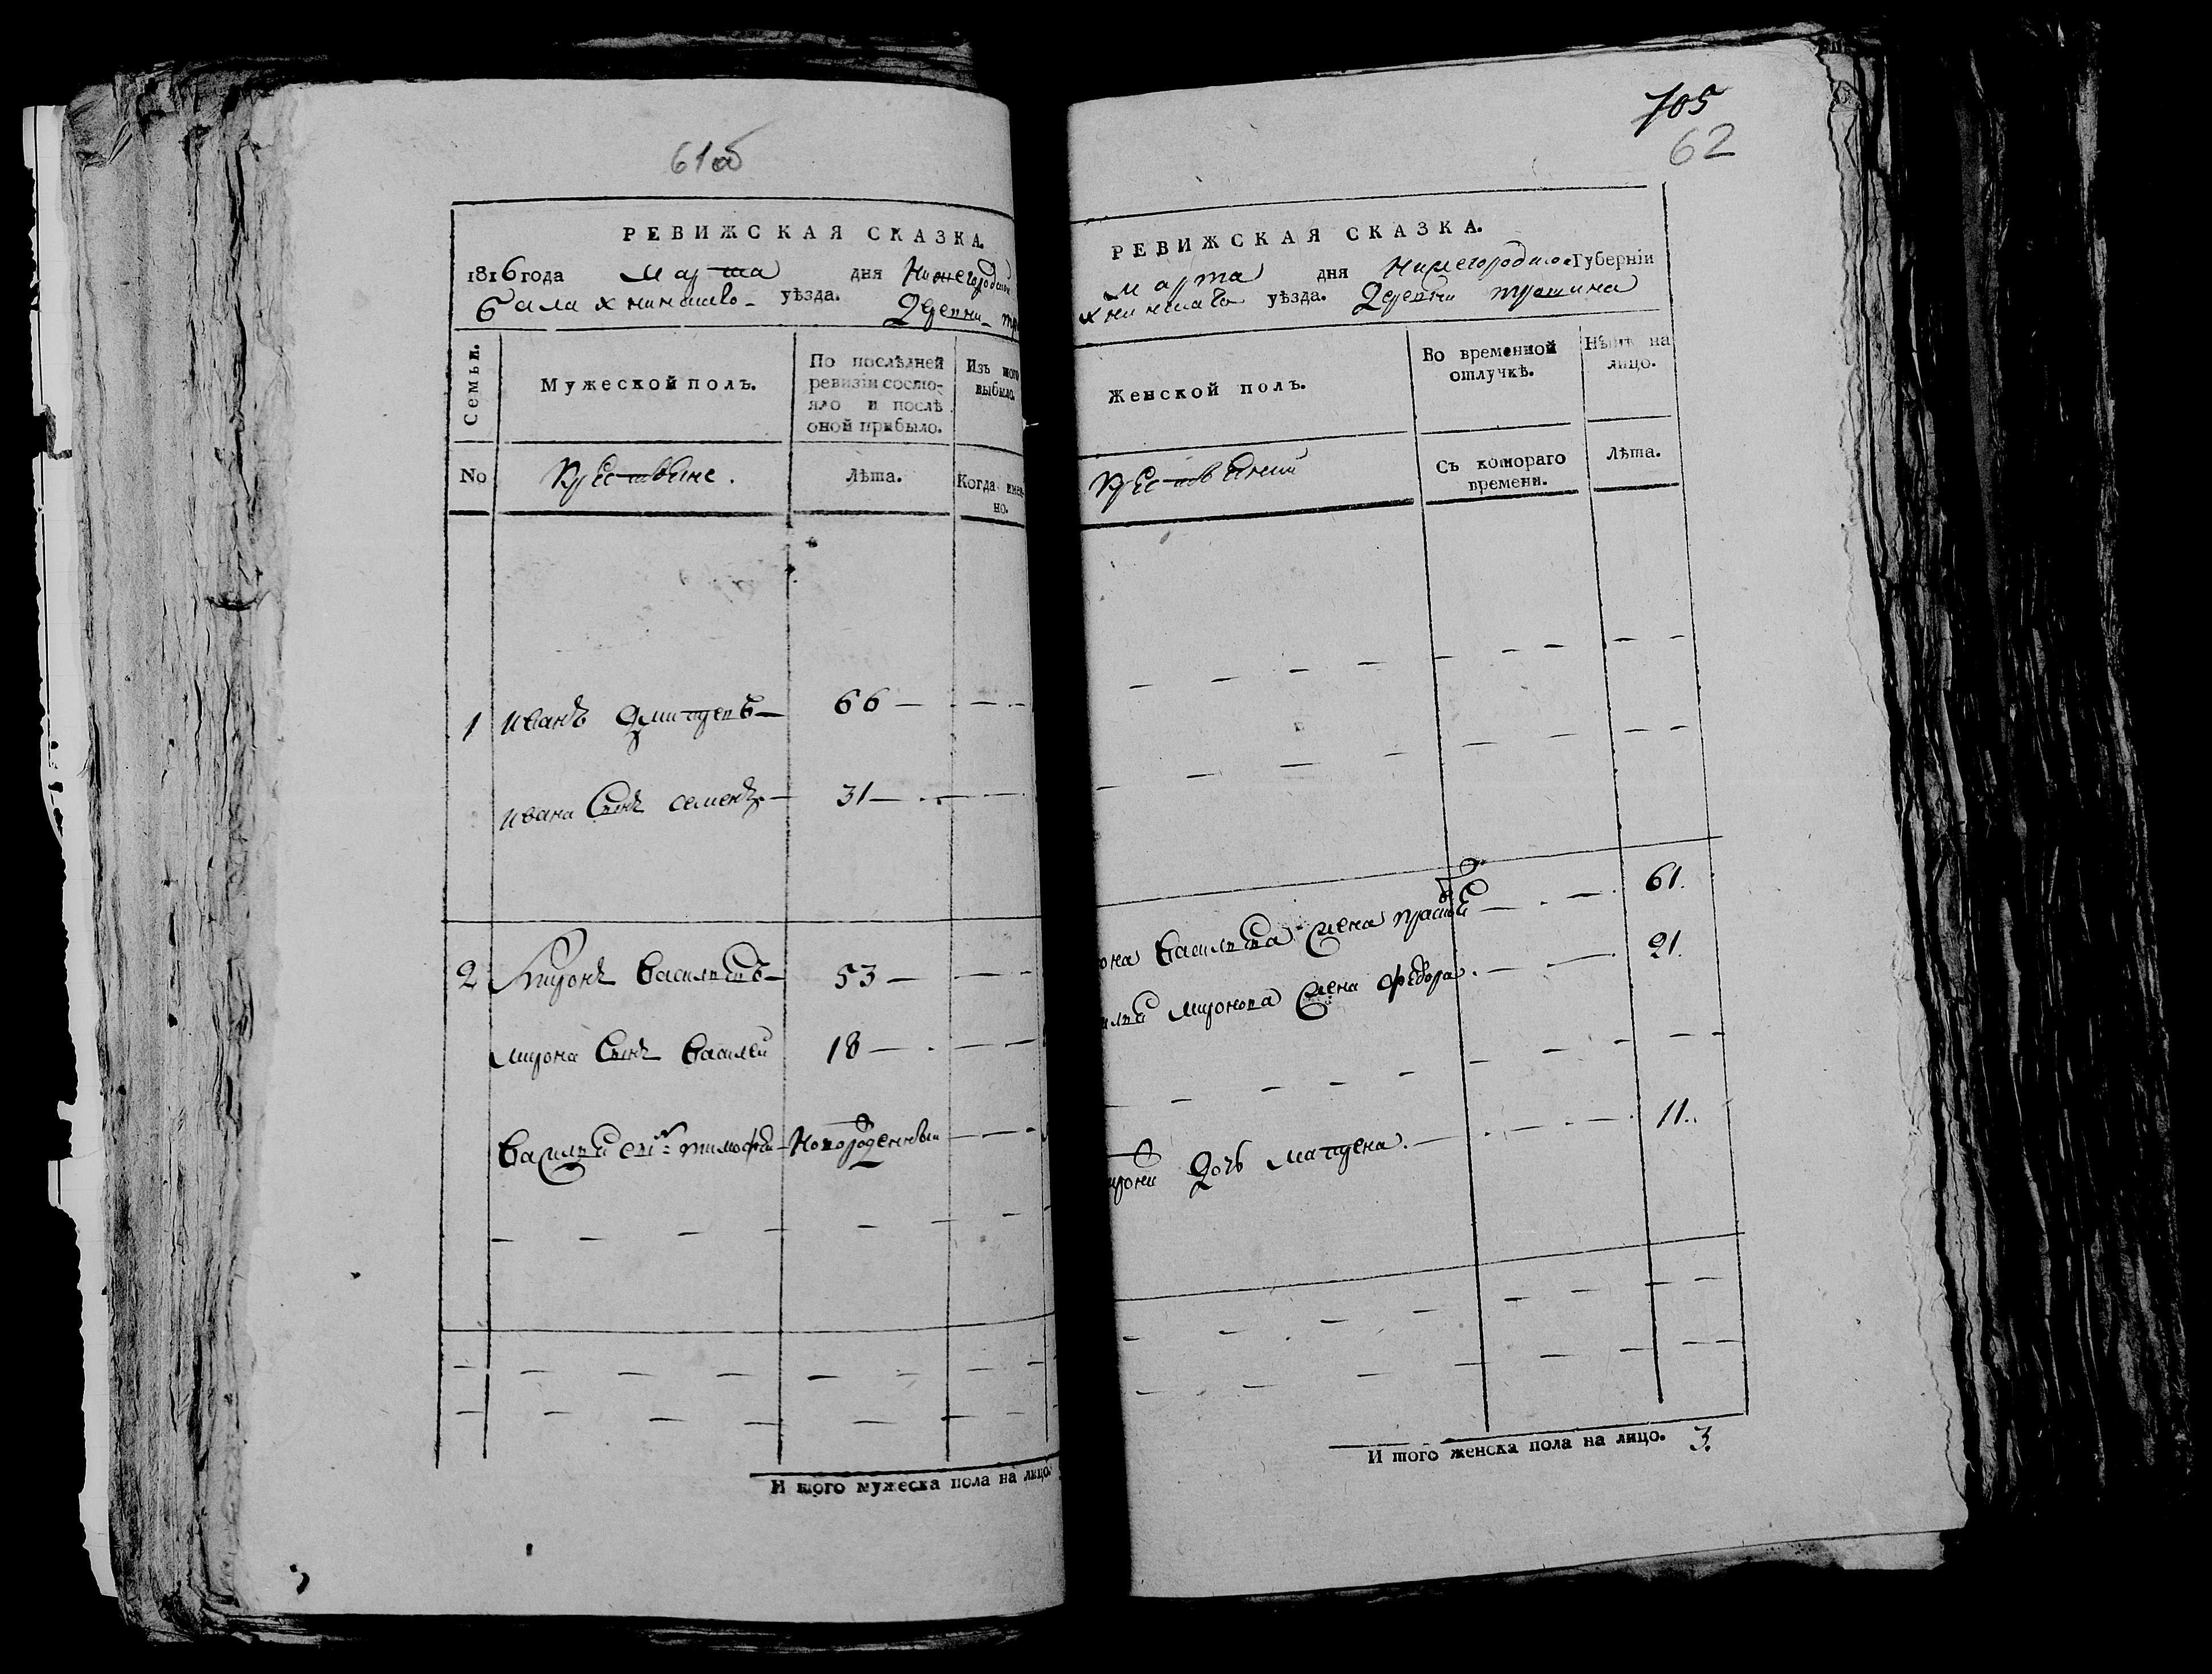 61об
РЕВИЖСКАЯ СКАЗКА.
1816 года Марта дня Нижегородской
балахнинского уѣзда. Деревни
Семьи.
Мужеской полъ.
По послѣдней
ревизіи состо-
яло и послѣ
оной прибыло.
Изъ того
выбыло.
No
Крестьяне.
Лѣта.
Когда имен-
но.
1 Иванъ Дмитревъ 66
Ивана Сынъ семенъ 31
2 Миронъ Васильевъ 53
Мирона Сынъ Василей 18
Новорожденный
И того мужеска пола на лицо.
705
62
РЕВИЖСКАЯ СКАЗКА.
Марта дня Нижегородской Губерніи
уѣзда. Деревни
Женской полъ.
Во временной
отлучкѣ.
Нынѣ на
лицо.
Съ котораго
времени.
Лѣта.
Васильева жена 61.
Миронова жена Федора. 21.
Дочь Матрена. 11.
И того женска пола на лицо. 3.